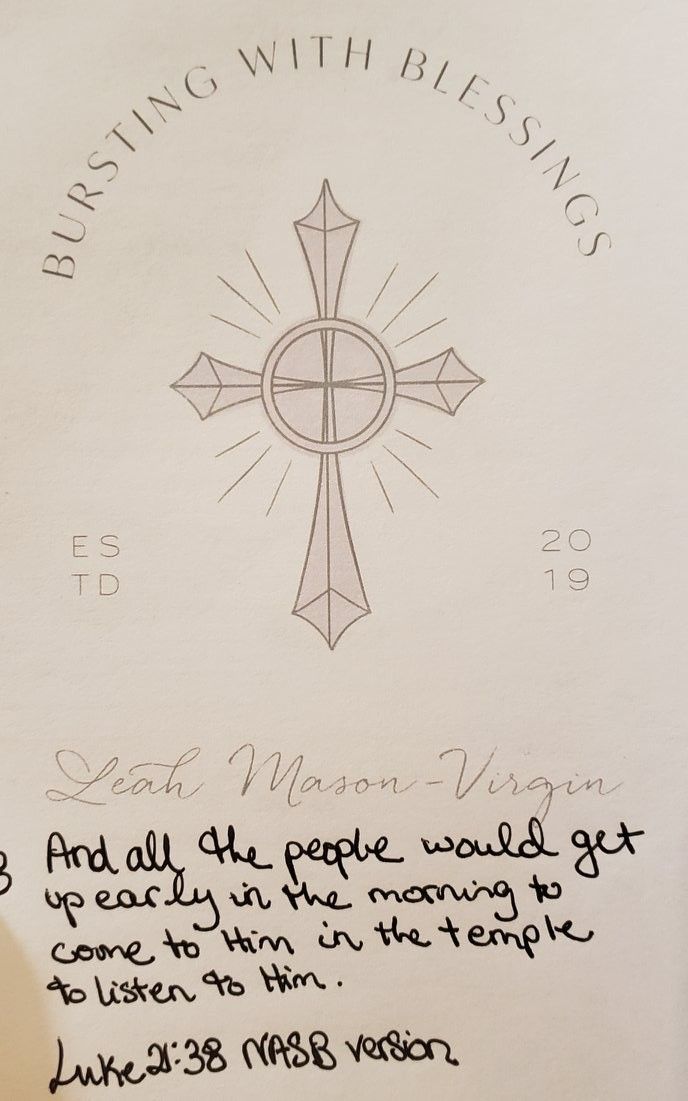 BURSTING WITH BLESSINGS
ES
TD
20
19
Leah Mason-Virgin
And all the people would get
up early in the morning to
come to Him in the temple
to listen to Him.
Luke 21:38 NASB version